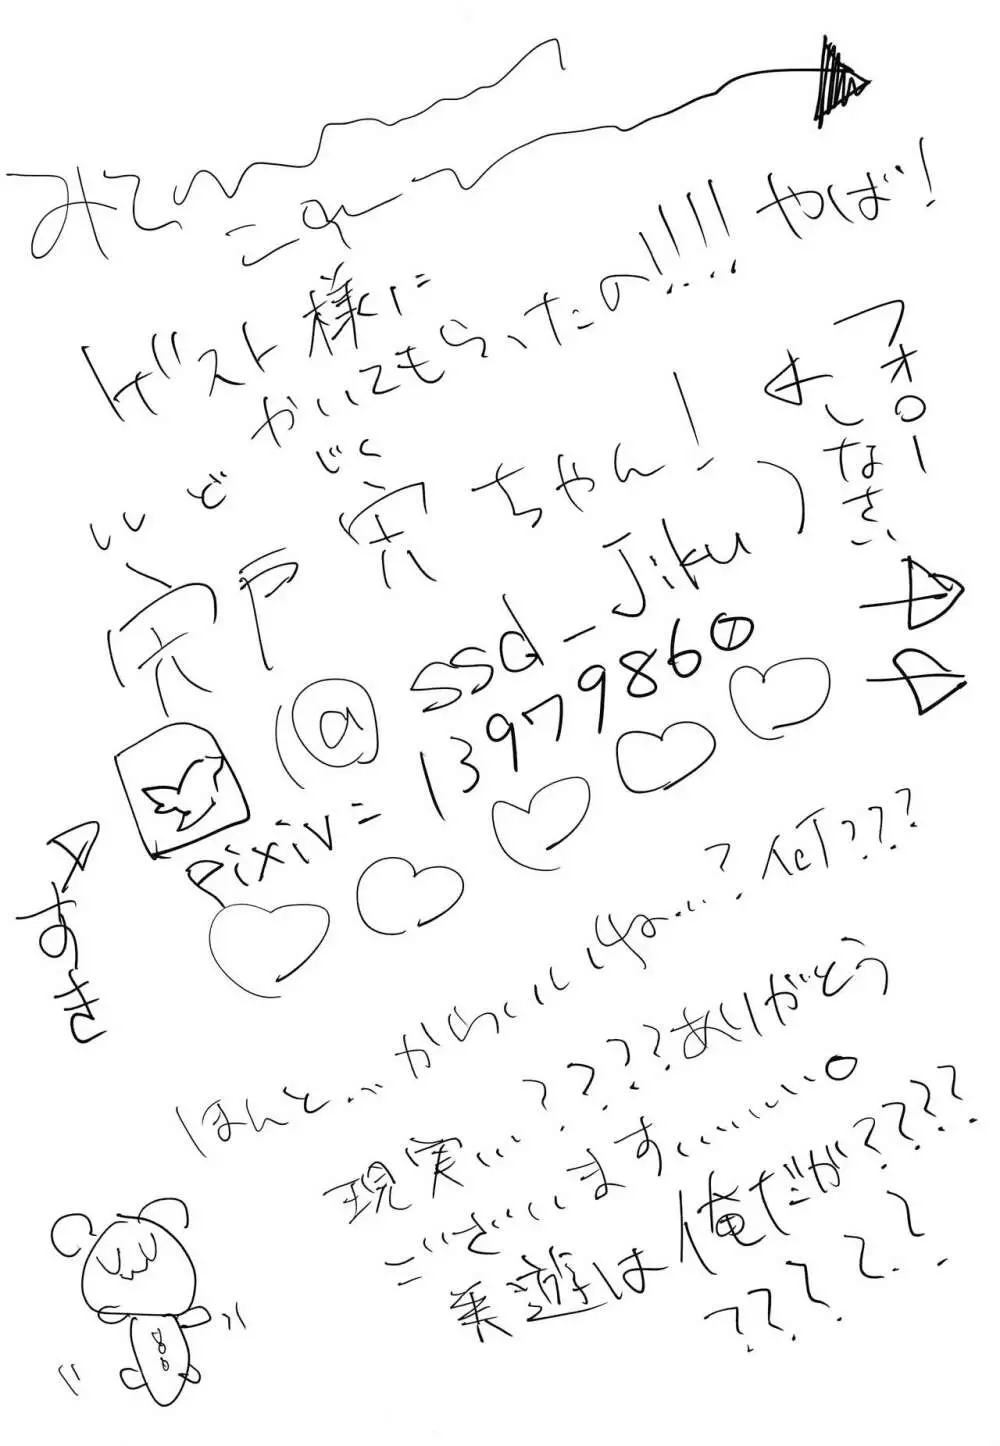 みて
この
ゲスト様に
かいてもらったの!!!! やば!
ししど じく
宍戸 宍ちゃん!
(@ssd_Jiku)
pixiv=13979860
フォロー
しなさい
すき
ほんと…からいいね…?何???
現実…????ありがとう
ございます……。
美遊は俺だが????
?????